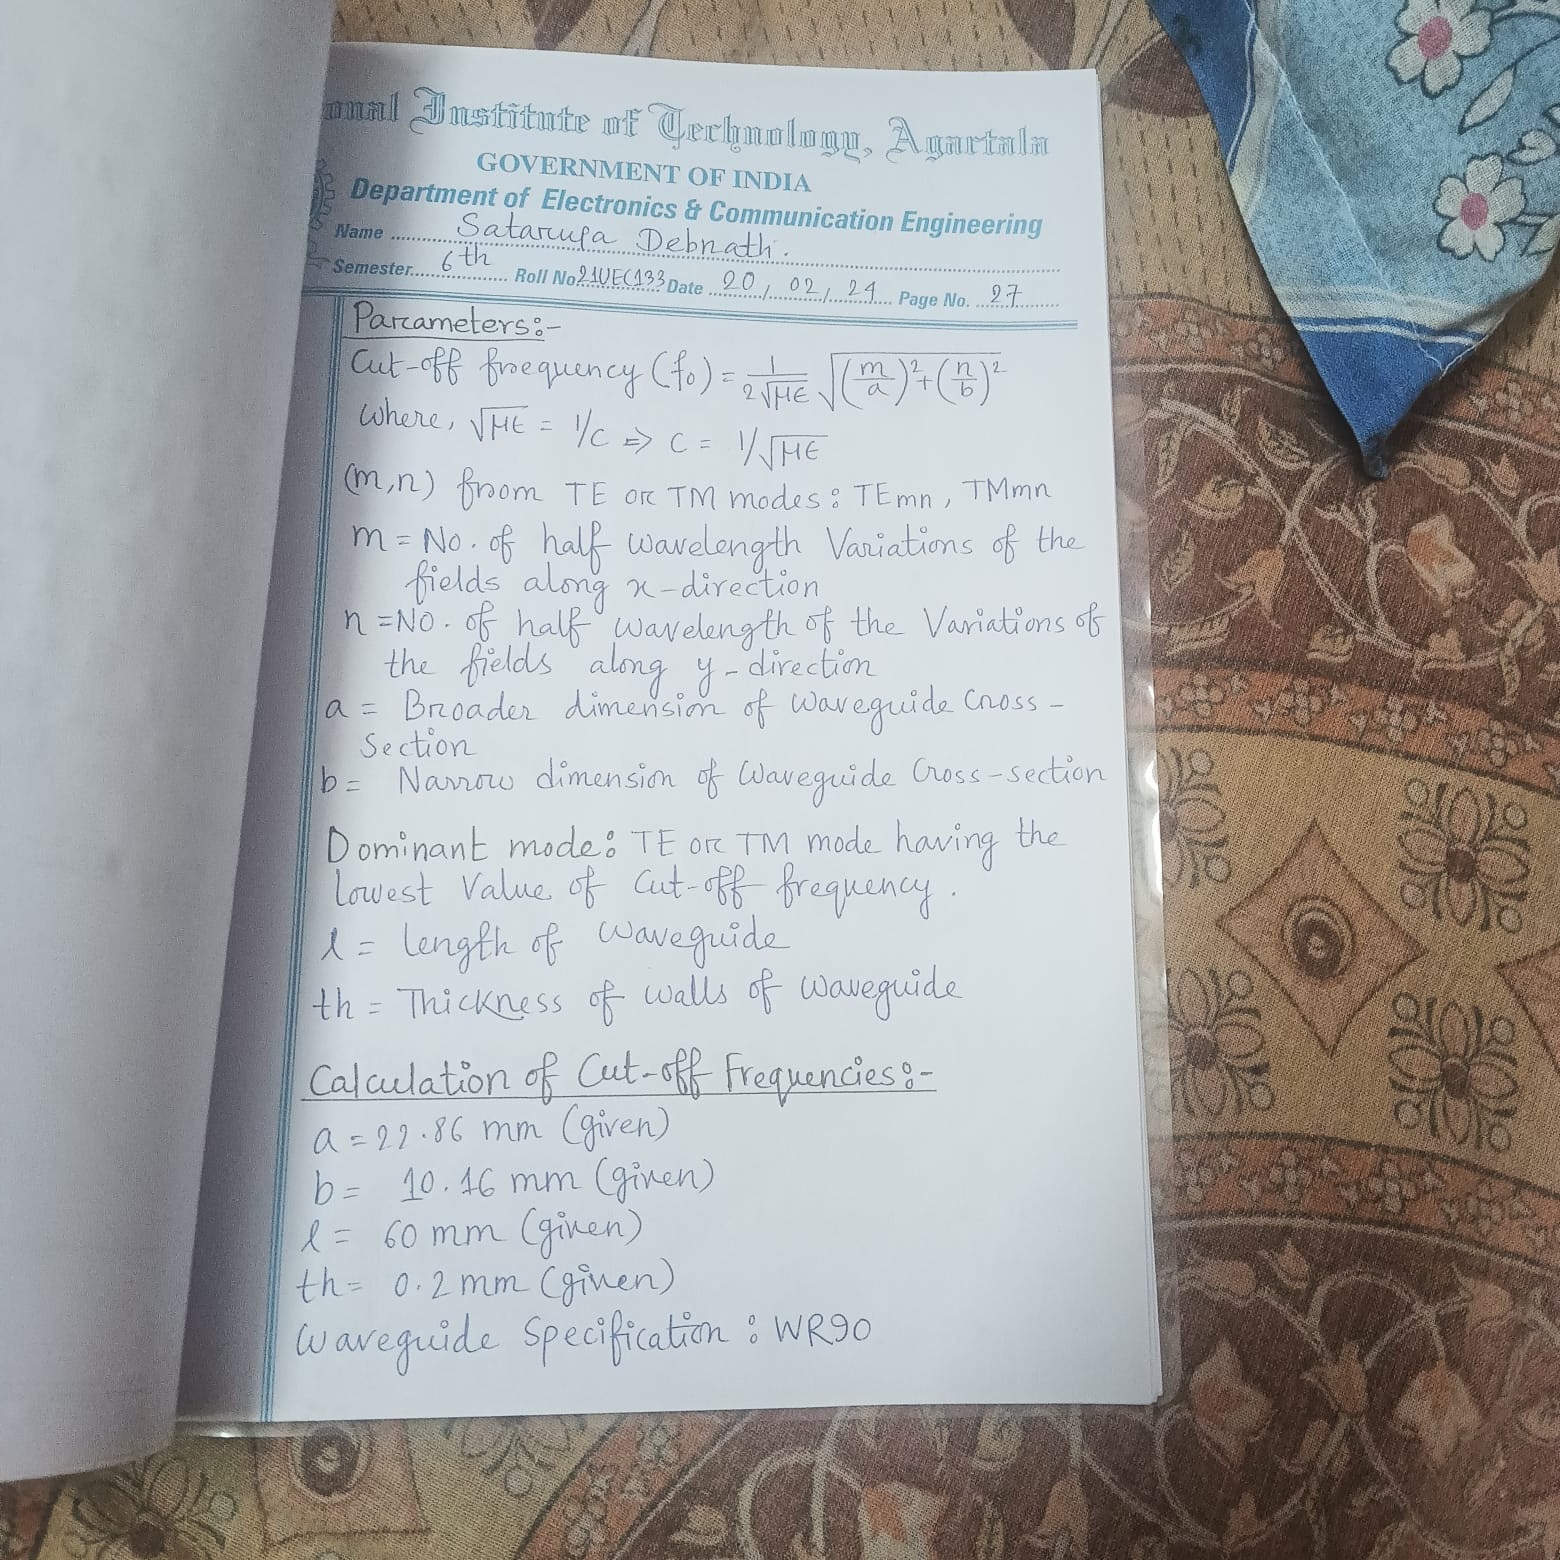 onal Institute of Technology, Agartala
GOVERNMENT OF INDIA
Department of Electronics & Communication Engineering
Name Satarupa Debnath.
Semester 6th Roll No 21UEC133 Date 20, 02, 24 Page No. 27
Parameters:-
Cut-off frequency (f₀) = 1/(2√με) √((m/a)²+(n/b)²)
Where, √με = 1/c ⇒ c = 1/√με
(m,n) from TE or TM modes : TEmn, TMmn
m = No. of half wavelength Variations of the
fields along x-direction
n = No. of half wavelength of the Variations of
the fields along y-direction
a = Broader dimension of Waveguide Cross-
Section
b = Narrow dimension of Waveguide Cross-section
Dominant mode: TE or TM mode having the
Lowest Value of Cut-off frequency.
l = length of waveguide
th = Thickness of walls of waveguide
Calculation of Cut-off Frequencies:-
a = 22.86 mm (given)
b = 10.16 mm (given)
l = 60 mm (given)
th = 0.2 mm (given)
Waveguide Specification : WR90